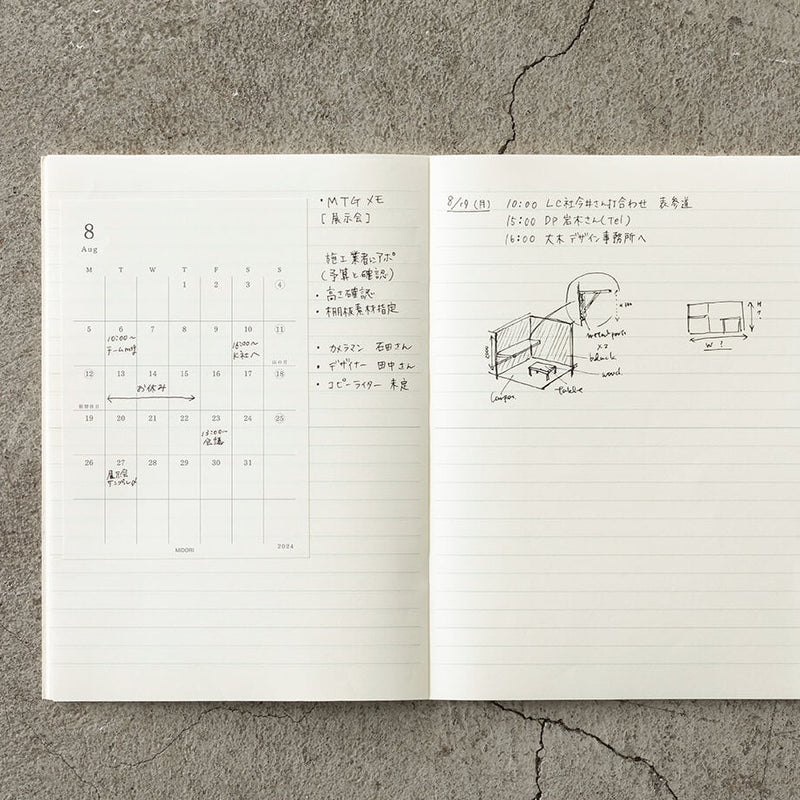 8
Aug
M T W T F S S
1 2 3 4
5 6 7 8 9 10 11
10:00〜
チームmtg
15:00〜
K社へ
山の日
12 13 14 15 16 17 18
お休み
振替休日
19 20 21 22 23 24 25
13:00〜
会議
26 27 28 29 30 31
展示会
サンプル〆
MIDORI
2024
・MTGメモ
[展示会]
施工業者にアポ
(予算と確認)
・高さ確認
・棚板素材指定
・カメラマン 石田さん
・デザイナー 田中さん
・コピーライター 未定
8/19(月) 10:00 LC社今井さん打合わせ 表参道
15:00 DP岩木さん(Tel)
16:00 大木デザイン事務所へ
metal parts
×2
black
wood
table
H
?
W ?